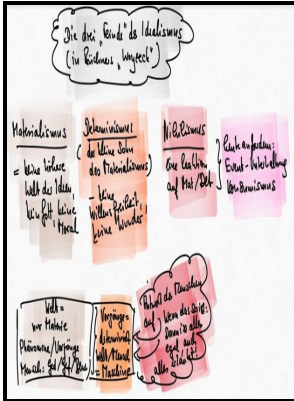 Die drei "Feinde" des Idealismus
(in Büchners "Woyzeck")
Materialismus
= keine höhere
Welt der Ideen,
kein Gott, keine
Moral
Determinismus
der kleine Sohn
des Materialismus
- keine
Willensfreiheit,
keine Wunder
Nihilismus
eine Reaktion
auf Mat/Det
Event-Unterhaltung
Konsumismus
Welt =
nur Materie
Phänomene/Vorgänge
Mensch:
Vorgänge =
determiniert
Welt/Mensch
= Maschine
Antwort des Menschen
auf
Wenn das so ist:
Dann ist alles
egal auch
alles